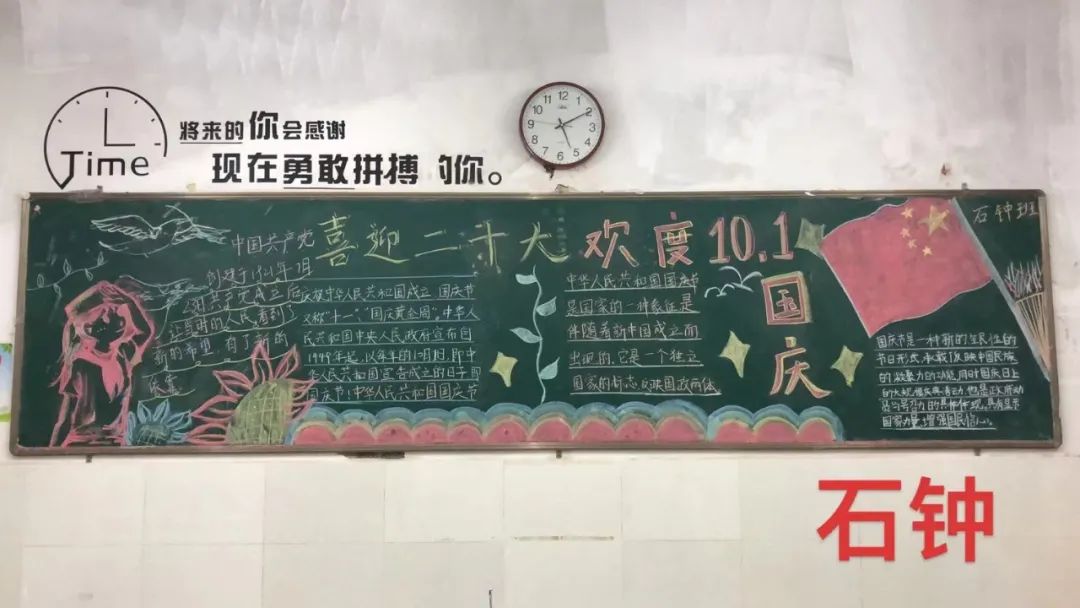 Time
将来的你会感谢
现在勇敢拼搏的你。
12
1
2
3
4
5
6
7
8
9
10
11
石钟班
喜迎二十大 欢度10.1
国庆
中国共产党
创建于1921年7月
共产党成立后
让当时的人民看到了
新的希望,有了新的
依靠
庆祝中华人民共和国成立 国庆节
又称“十一”、“国庆黄金周”,中华人
民共和国中央人民政府宣布自
1949年起,以每年的10月1日,即中
华人民共和国宣告成立的日子即
国庆节(中华人民共和国国庆节
中华人民共和国国庆节
是国家的一种象征是
伴随着新中国成立而
出现的,它是一个独立
国家的标志反映国政而体
国庆节是一种新的全民性的
节日形式,承载了反映中国民族
的
的功能,同时国庆日上
的大规模庆典活动,也是政府动
员与号召力的具体体现,具有显示
国家力量,增强国民信心。
石钟